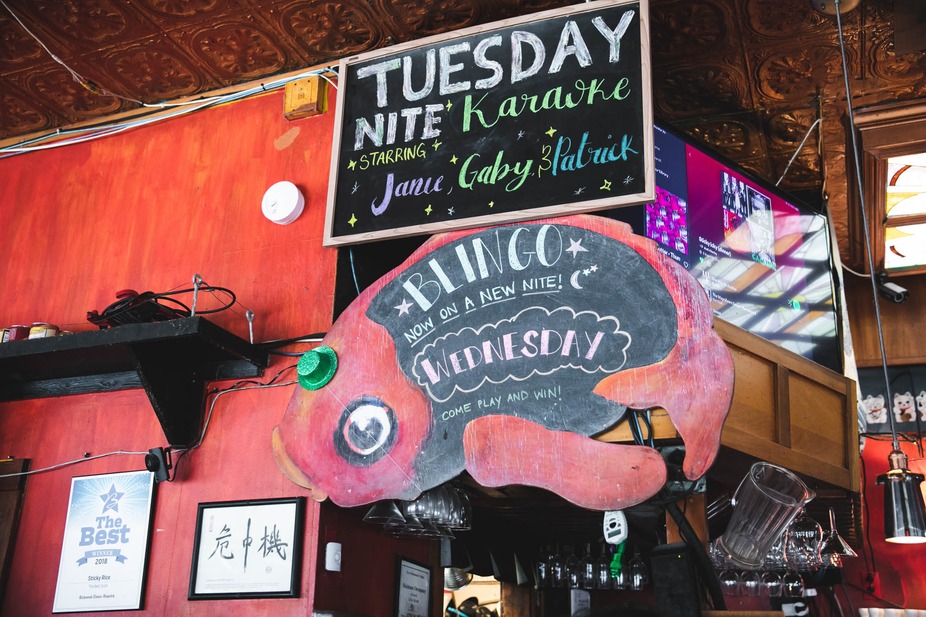 TUESDAY
NITE Karaoke
STARRING
Janie, Gaby, & Patrick
BLINGO
NOW ON A NEW NITE!
WEDNESDAY
COME PLAY AND WIN!
The
Best
WINNER
2018
Sticky Rice
危中機